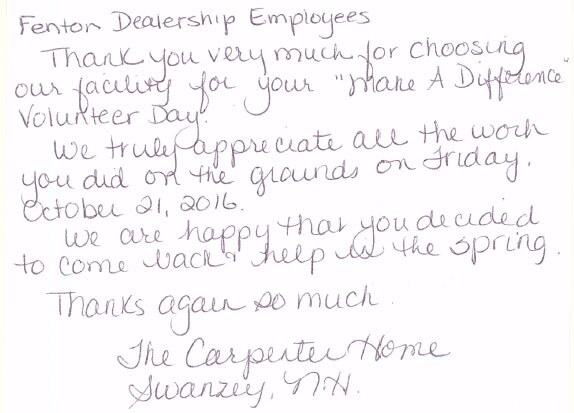 Fenton Dealership Employees
Thank you very much for choosing
our facility for your "Make A Difference"
Volunteer Day.
We truly appreciate all the work
you did on the grounds on Friday,
October 21, 2016.
We are happy that you decided
to come back & help us the spring.
Thanks again so much.
The Carpenter Home
Swanzey, N.H.